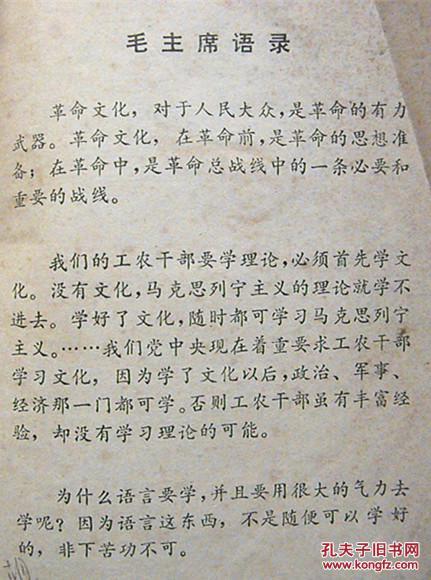 毛主席语录
革命文化，对于人民大众，是革命的有力
武器。革命文化，在革命前，是革命的思想准
备；在革命中，是革命总战线中的一条必要和
重要的战线。
我们的工农干部要学理论，必须首先学文
化。没有文化，马克思列宁主义的理论就学不
进去。学好了文化，随时都可学习马克思列宁
主义。……我们党中央现在着重要求工农干部
学习文化，因为学了文化以后，政治、军事、
经济那一门都可学。否则工农干部虽有丰富经
验，却没有学习理论的可能。
为什么语言要学，并且要用很大的气力去
学呢？因为语言这东西，不是随便可以学好
的，非下苦功不可。
孔夫子旧书网
www.kongfz.com